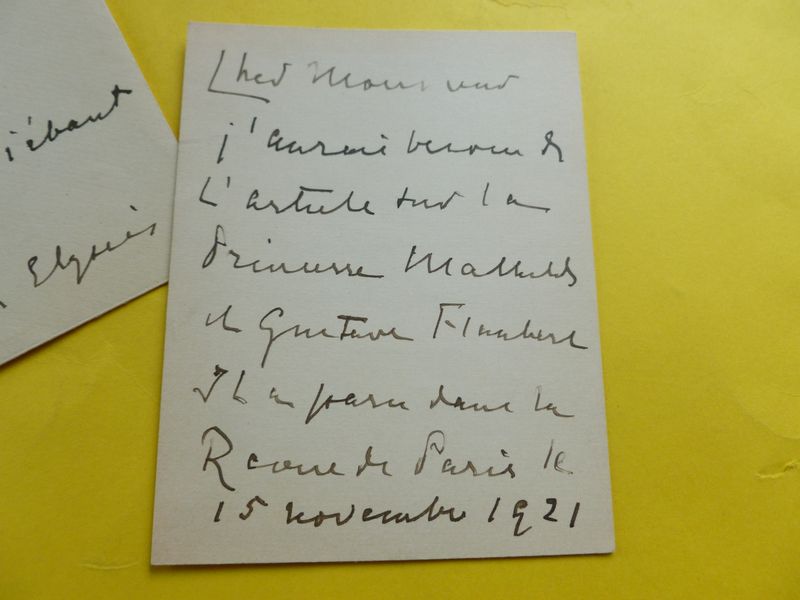 j'ébaut
Elysées
Cher Monsieur
j'aurai besoin de
L'article sur la
Princesse Mathilde
et Gustave Flaubert
Il a paru dans la
Revue de Paris le
15 novembre 1921